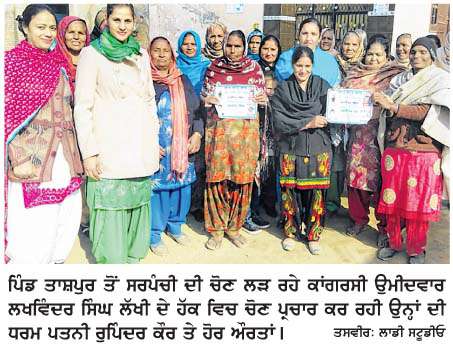 ਪਿੰਡ ਤਾਸ਼ਪੁਰ ਤੋਂ ਸਰਪੰਚੀ ਦੀ ਚੋਣ ਲੜ ਰਹੇ ਕਾਂਗਰਸੀ ਉਮੀਦਵਾਰ
ਲਖਵਿੰਦਰ ਸਿੰਘ ਲੱਖੀ ਦੇ ਹੱਕ ਵਿਚ ਚੋਣ ਪ੍ਰਚਾਰ ਕਰ ਰਹੀ ਉਨ੍ਹਾਂ ਦੀ
ਧਰਮ ਪਤਨੀ ਰੁਪਿੰਦਰ ਕੌਰ ਤੇ ਹੋਰ ਔਰਤਾਂ। ਤਸਵੀਰ: ਲਾਡੀ ਸਟੂਡੀਓ